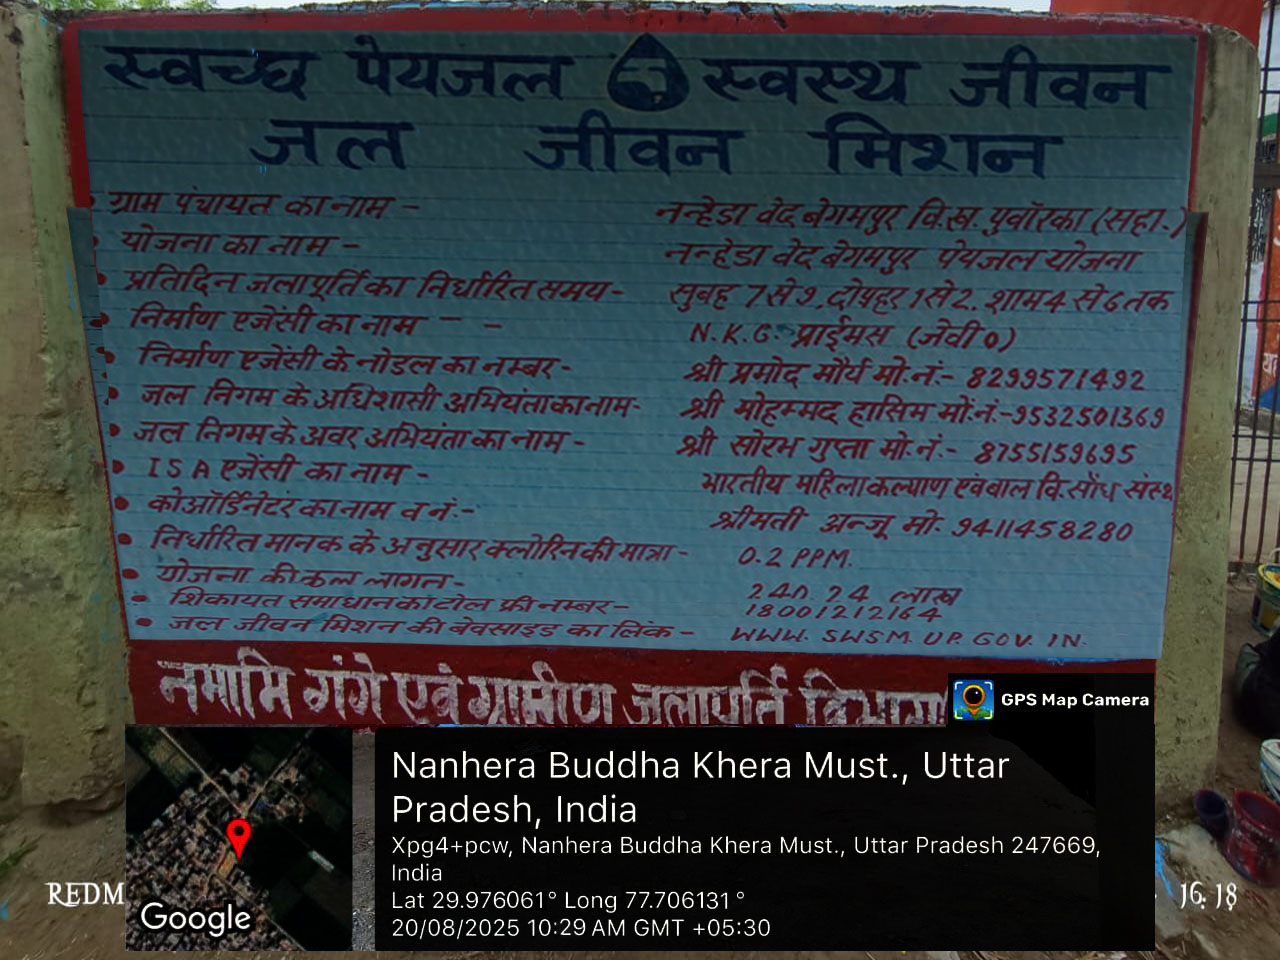 स्वच्छ पेयजल स्वस्थ जीवन
जल जीवन मिशन
ग्राम पंचायत का नाम - नन्हेडा वेद बेगमपुर वि.ख. पुवॉरका (सहा.)
योजना का नाम - नन्हेडा वेद बेगमपुर पेयजल योजना
प्रतिदिन जलापूर्ति का निर्धारित समय - सुबह 7 से 9, दोपहर 1 से 2. शाम 4 से 6 तक
निर्माण एजेंसी का नाम - - N.K.G. प्राईमस (जेवी०)
निर्माण एजेंसी के नोडल का नम्बर - श्री प्रमोद मौर्य मो.नं.- 8299571492
जल निगम के अधिशासी अभियंता का नाम- श्री मोहम्मद हासिम मों.नं.-9532501369
जल निगम के अवर अभियंता का नाम - श्री सोरभ गुप्ता मो.नं.- 8755159695
ISA एजेंसी का नाम - भारतीय महिला कल्याण एवं बाल वि. सोंध संस्थ
कोऑर्डिनेटर का नाम व नं:- श्रीमती अन्जू मो. 9411458280
निर्धारित मानक के अनुसार क्लोरिन की मात्रा - 0.2 PPM.
योजना की कुल लागत- 240.24 लाख
शिकायत समाधान का टोल फ्री नम्बर - 18001212164
जल जीवन मिशन की वेवसाइड का लिंक - WWW. SWSM. UP. GOV. IN.
नमामि गंगे एवं ग्रामीण जलापूर्ति विभाग
GPS Map Camera
Nanhera Buddha Khera Must., Uttar
Pradesh, India
Xpg4+pcw, Nanhera Buddha Khera Must., Uttar Pradesh 247669,
India
Lat 29.976061° Long 77.706131°
20/08/2025 10:29 AM GMT +05:30
Google
REDM
16:18